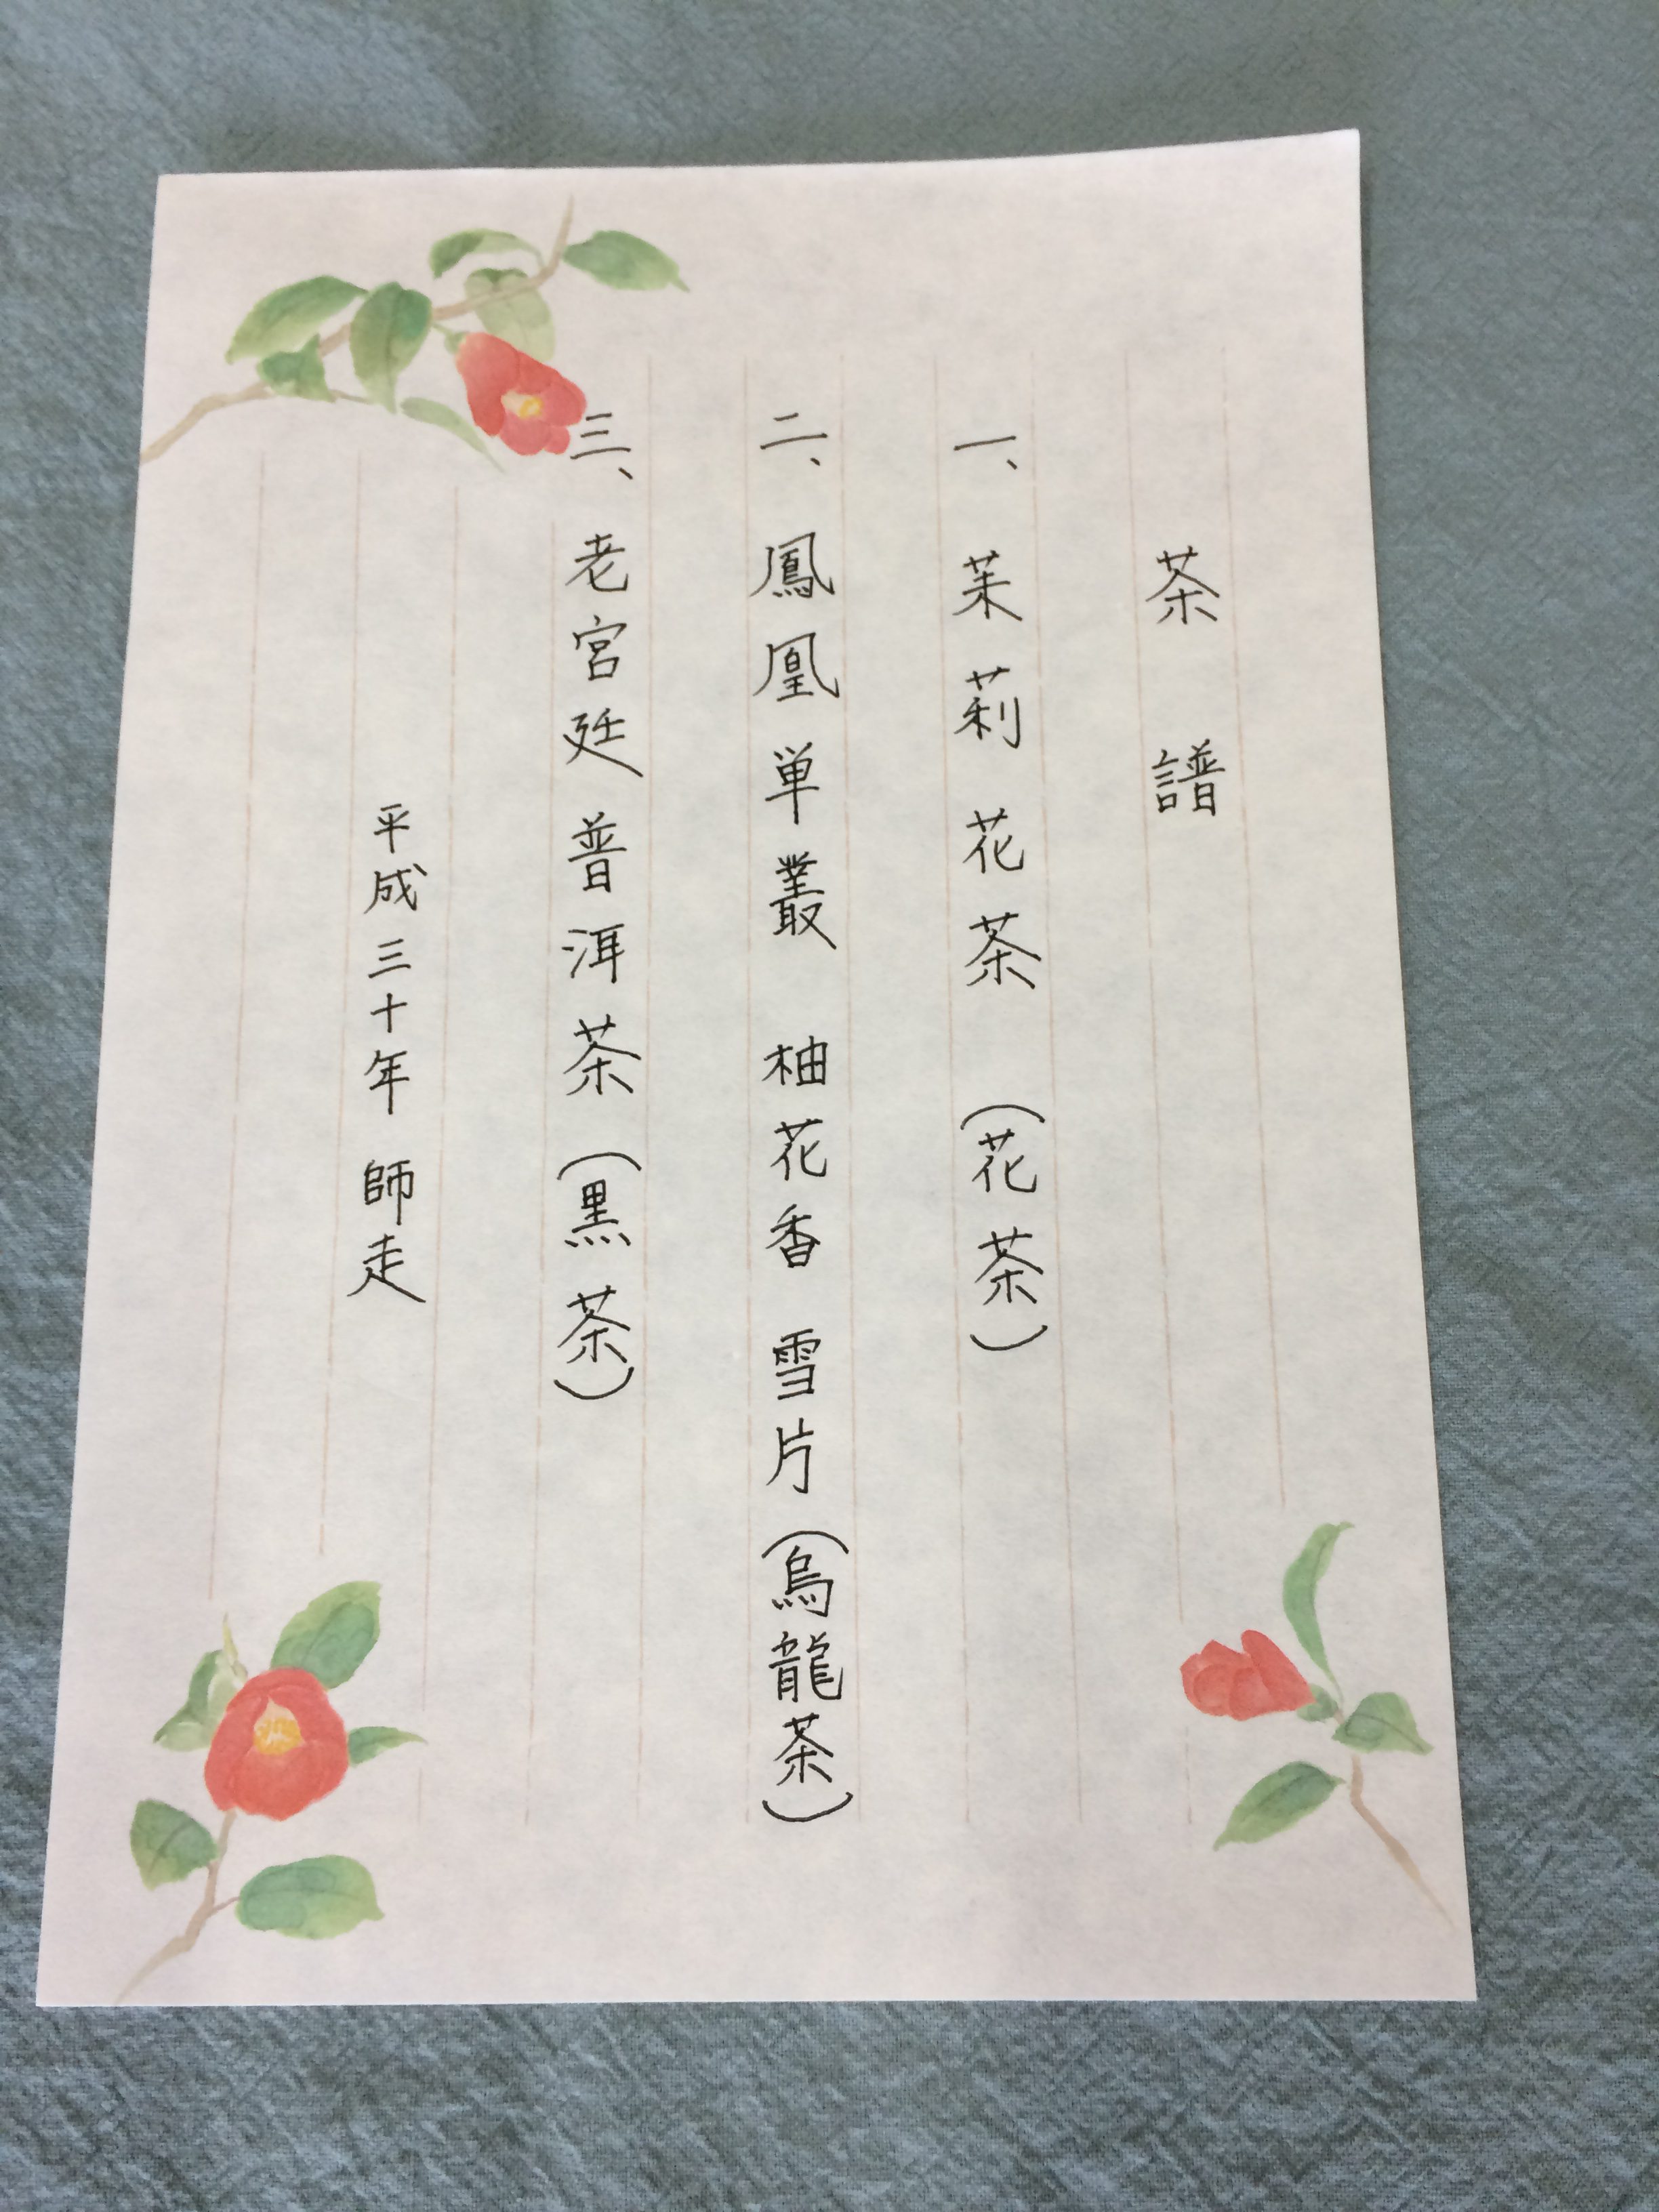 茶譜
一、茉莉花茶 (花茶)
二、鳳凰単叢 柚花香 雪片 (烏龍茶)
三、老宮廷普洱茶 (黒茶)
平成三十年 師走